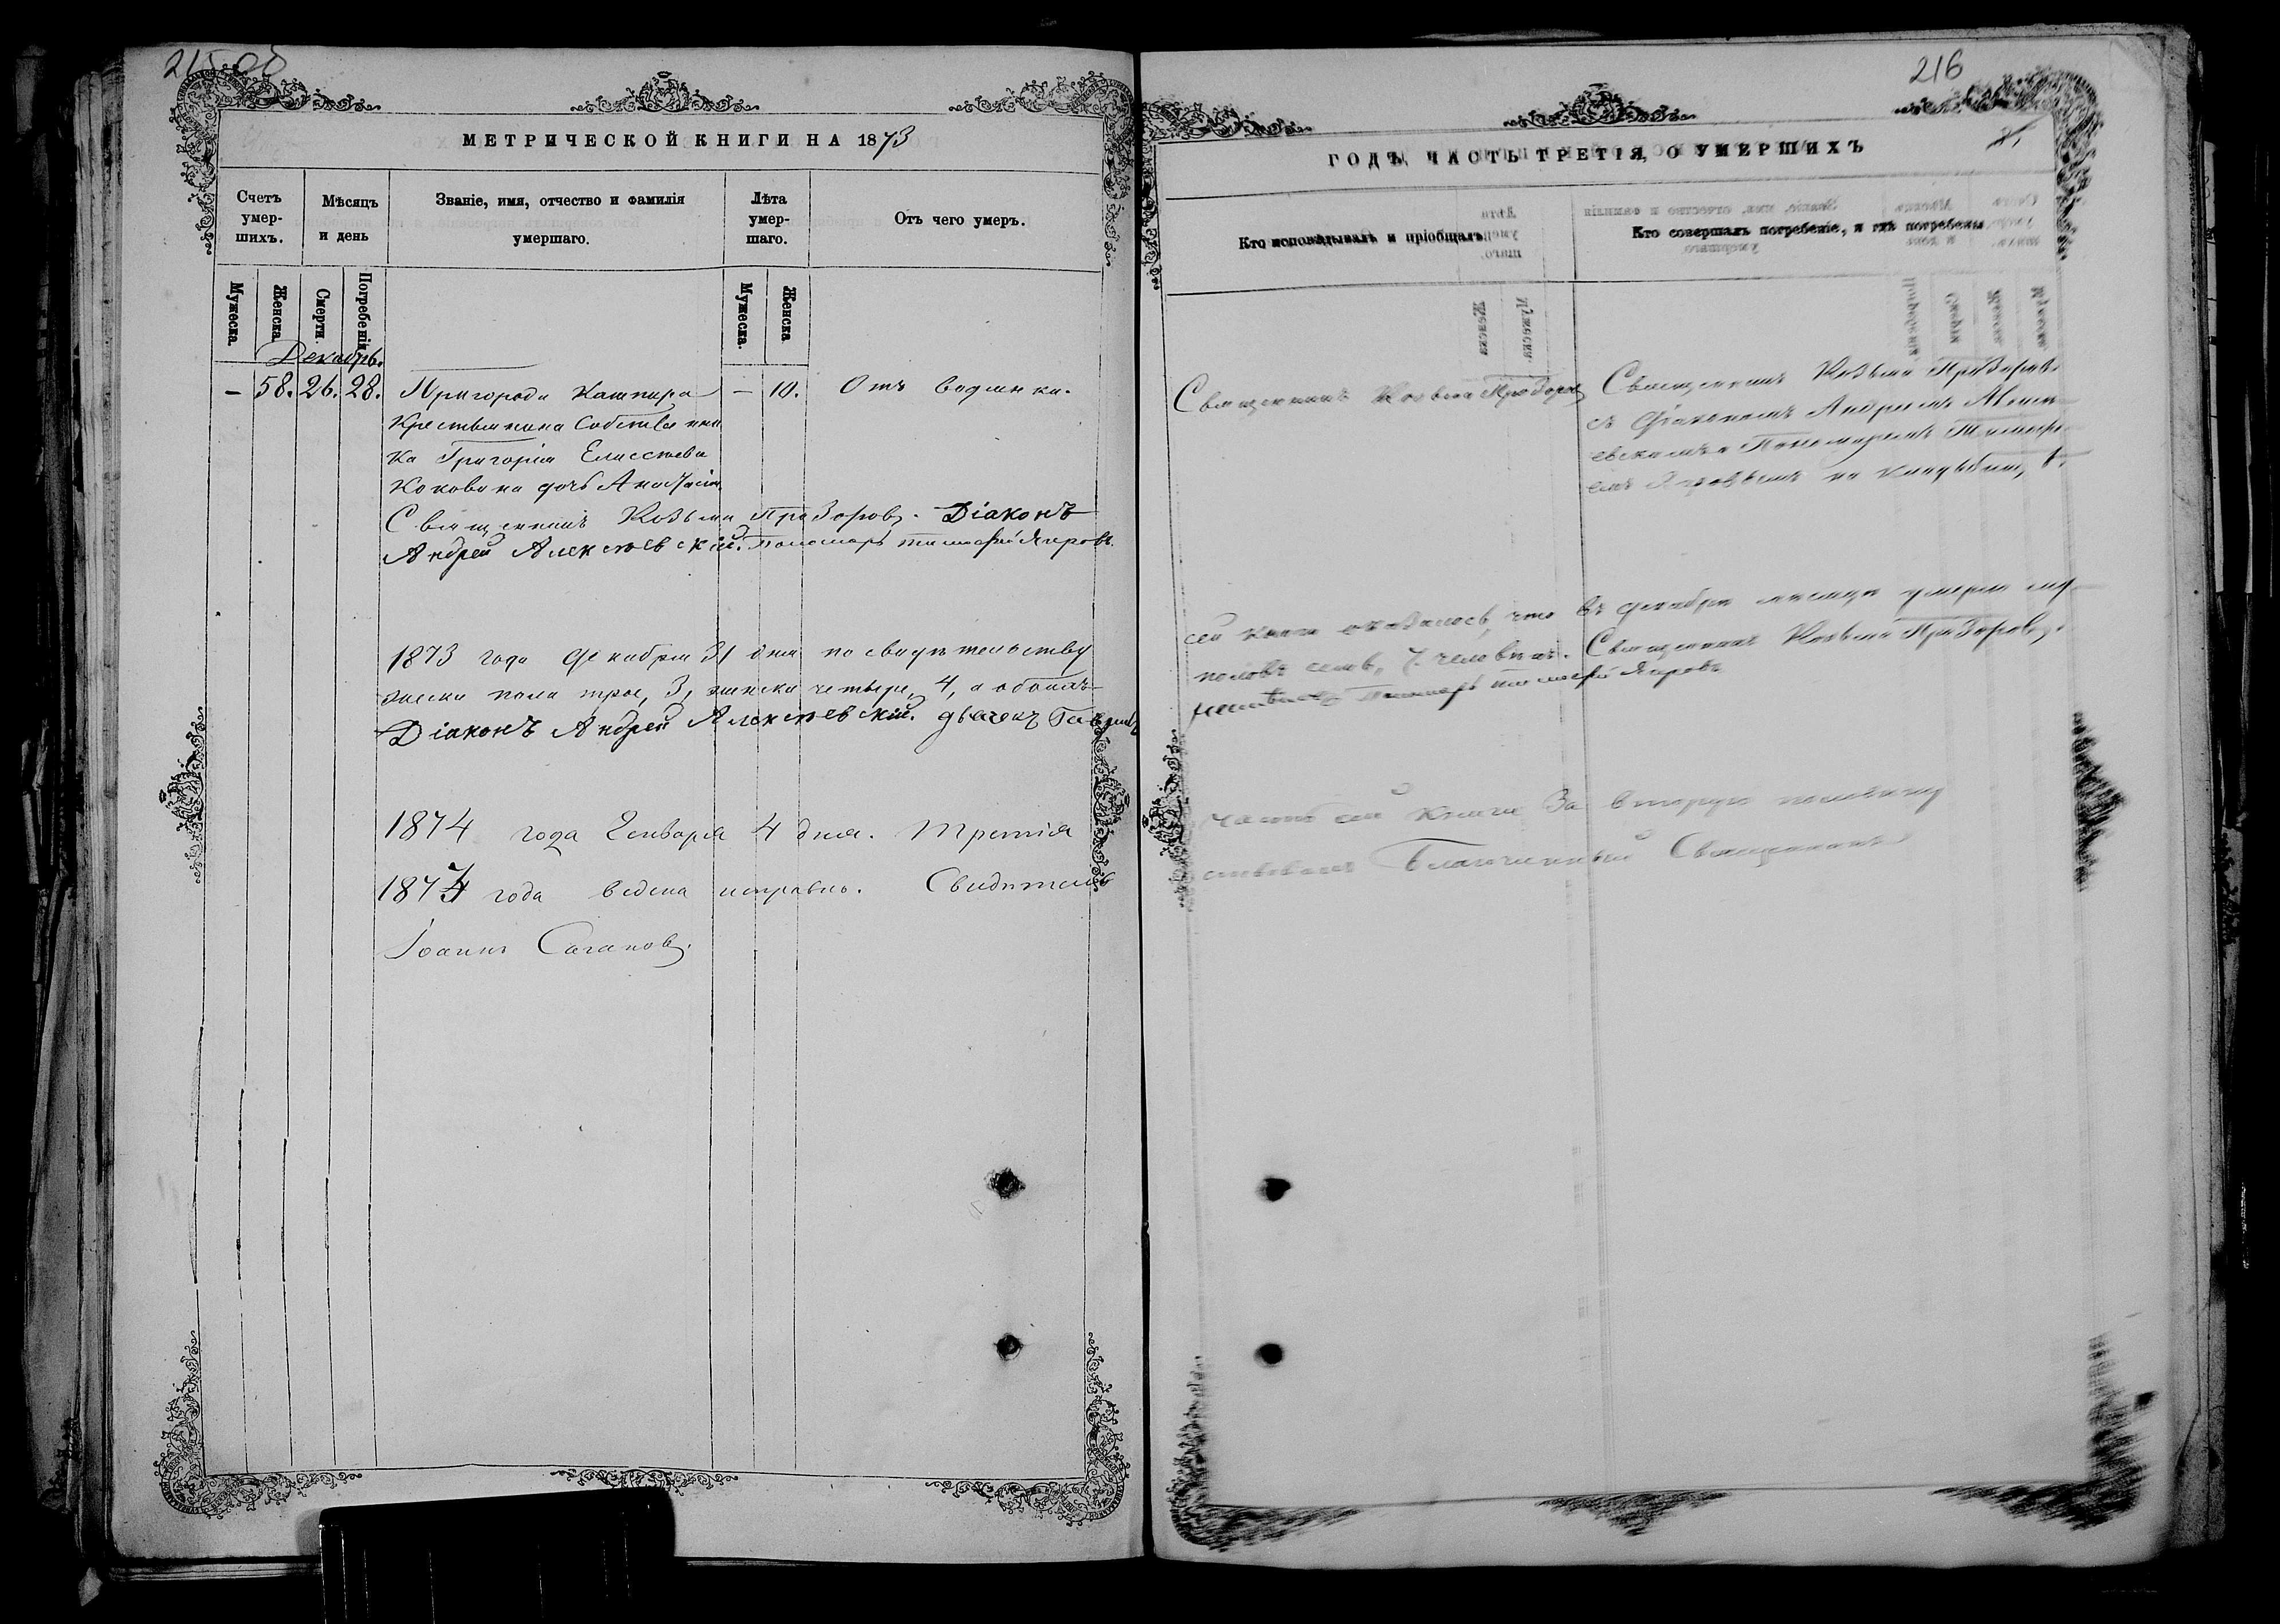 215 об
МЕТРИЧЕСКОЙ КНИГИ НА 1873
Счетъ умер-шихъ.
Мѣсяцъ и день
Званіе, имя, отчество и фамилія умершаго.
Лѣта умер-шаго.
Отъ чего умеръ.
Мужеска.
Женска.
Смерти.
Погребенія.
Мужеска.
Женска
Декабрь.
— 58. 26. 28. Пригорода Кашпира — 10. Отъ водянки.
Крестьянина Собственни
ка Григорія Елисеева
Коковина дочь Анастасія.
Священникъ Козьма Прозоровъ. Діаконъ
Андрей Алексѣевскій. Пономарь Тимофей Яхровъ.
1873 года Декабря 31 дня по свидѣтельству
женска четыре, 4, а обоихъ
Діаконъ Андрей Алексѣевскій. дьячекъ
1874 года Генваря 4 дня. Третія
1873 года ведена исправно. Свидѣтель
Іоаннъ Сагановъ.
216
ГОДЪ, ЧАСТЬ ТРЕТІЯ, О УМЕРШИХЪ
Кто исповѣдывалъ и пріобщалъ.
Кто совершалъ погребеніе, и гдѣ погребены
Священникъ Козьма Прозоровъ
Священникъ Козьма Прозоровъ
съ Діакономъ Андреемъ Алексѣ
евскимъ и Пономаремъ Тимофе
емъ на кладбищѣ
сей книги оказалось, что въ Декабрѣ мѣсяцѣ умерло
половъ семь, 7 человѣкъ. Священникъ Козьма Прозоровъ.
Пономарь Тимофей Яхровъ
часть сей книги за вторую половину
ствовалъ Благочинный Священникъ